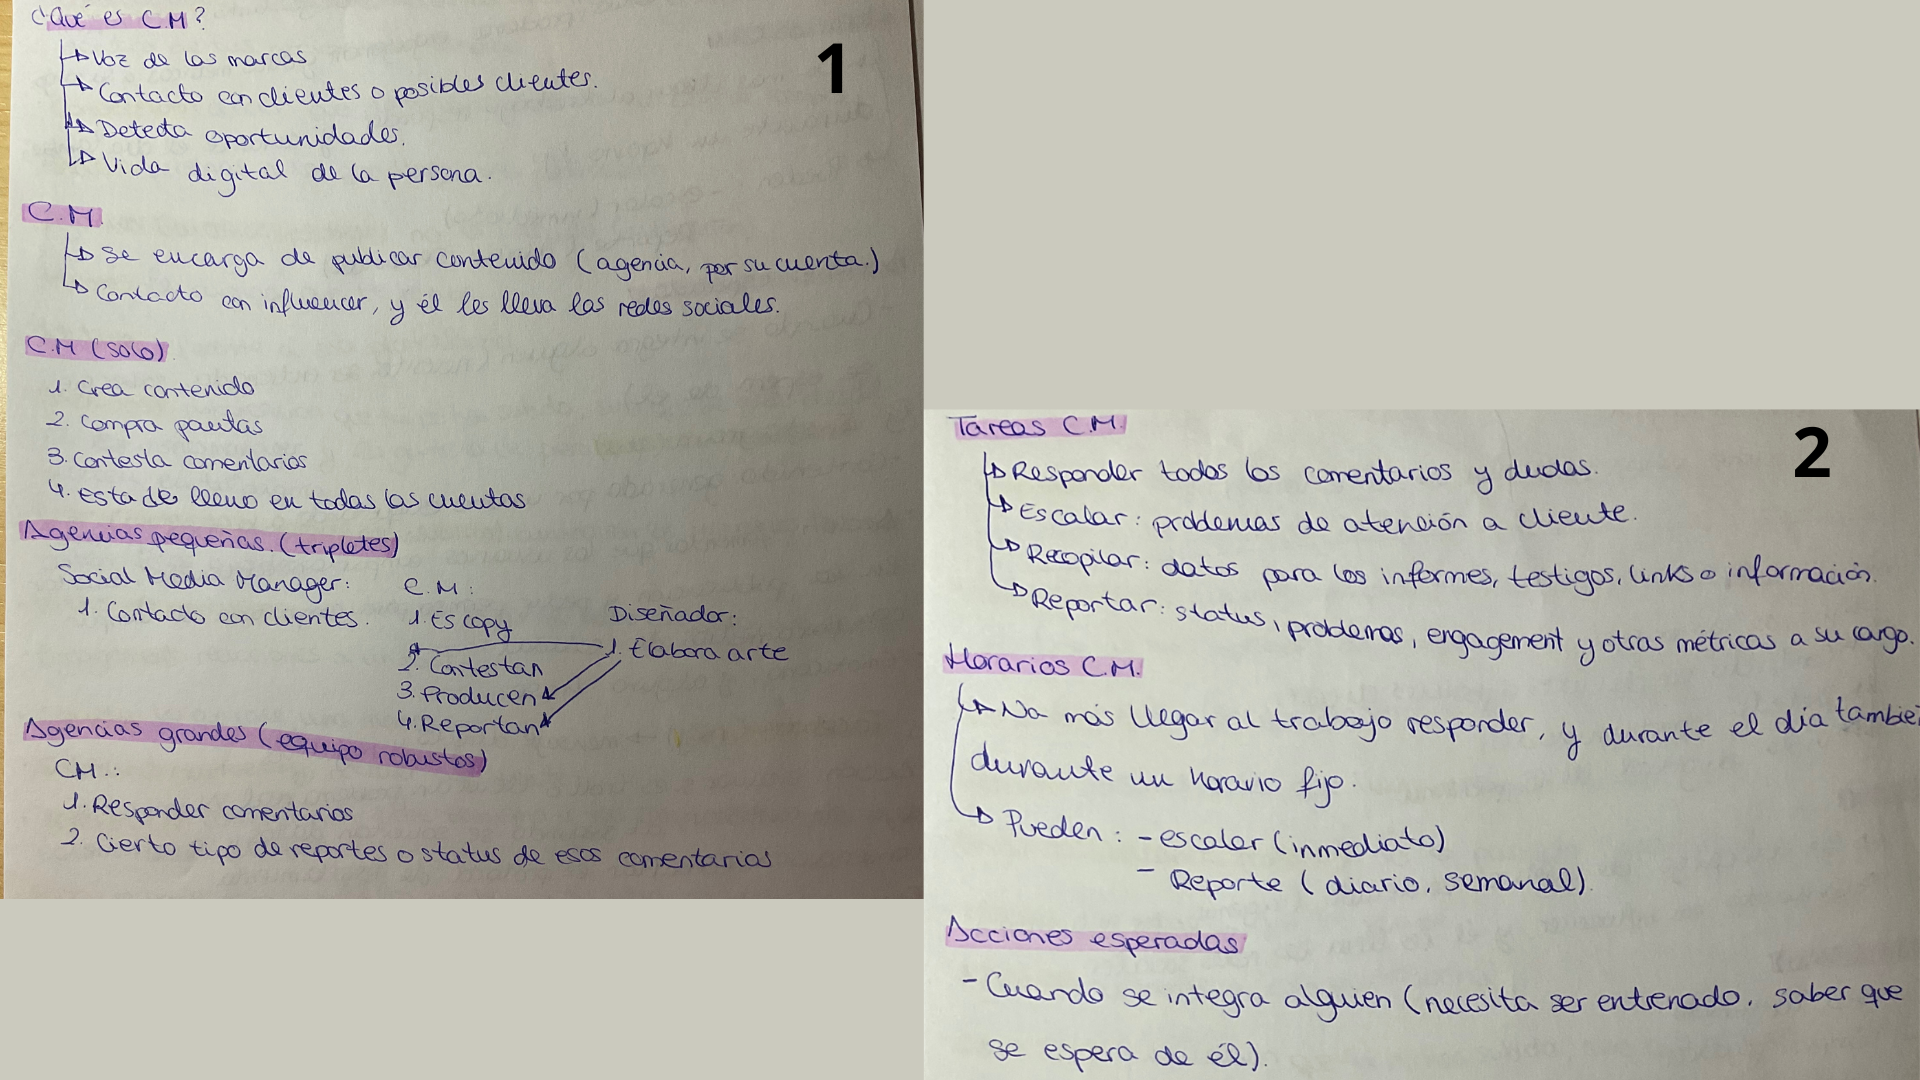 ¿Qué es C.M?
1
Voz de las marcas
Contacto con clientes o posibles clientes.
Detecta oportunidades.
Vida digital de la persona.
C.M.
Se encarga de publicar contenido (agencia, por su cuenta.)
Contacto con influencer, y él les lleva las redes sociales.
C.M (solo)
1. Crea contenido
2. Compra pautas
3. Contesta comentarios
4. Esta de lleno en todas las cuentas
Agencias pequeñas. (tripletes)
Social Media Manager: C.M:
1. Contacto con clientes. 1. Es copy Diseñador:
2. Contestan 1. Elabora arte
3. Producen
4. Reportan
Agencias grandes (equipo robustos)
CM.:
1. Responder comentarios
2. Cierto tipo de reportes o status de esos comentarios
Tareas C.M.
2
Responder todos los comentarios y dudas.
Escalar: problemas de atención a cliente.
Recopilar: datos para los informes, testigos, links o información.
Reportar: status, problemas, engagement y otras métricas a su cargo.
Horarios C.M.
Na más llegar al trabajo responder, y durante el día tambie
durante un horario fijo.
Pueden: - escalar (inmediato)
- Reporte (diario, semanal).
Acciones esperadas
- Cuando se integra alguien (necesita ser entrenado, saber que
se espera de él).